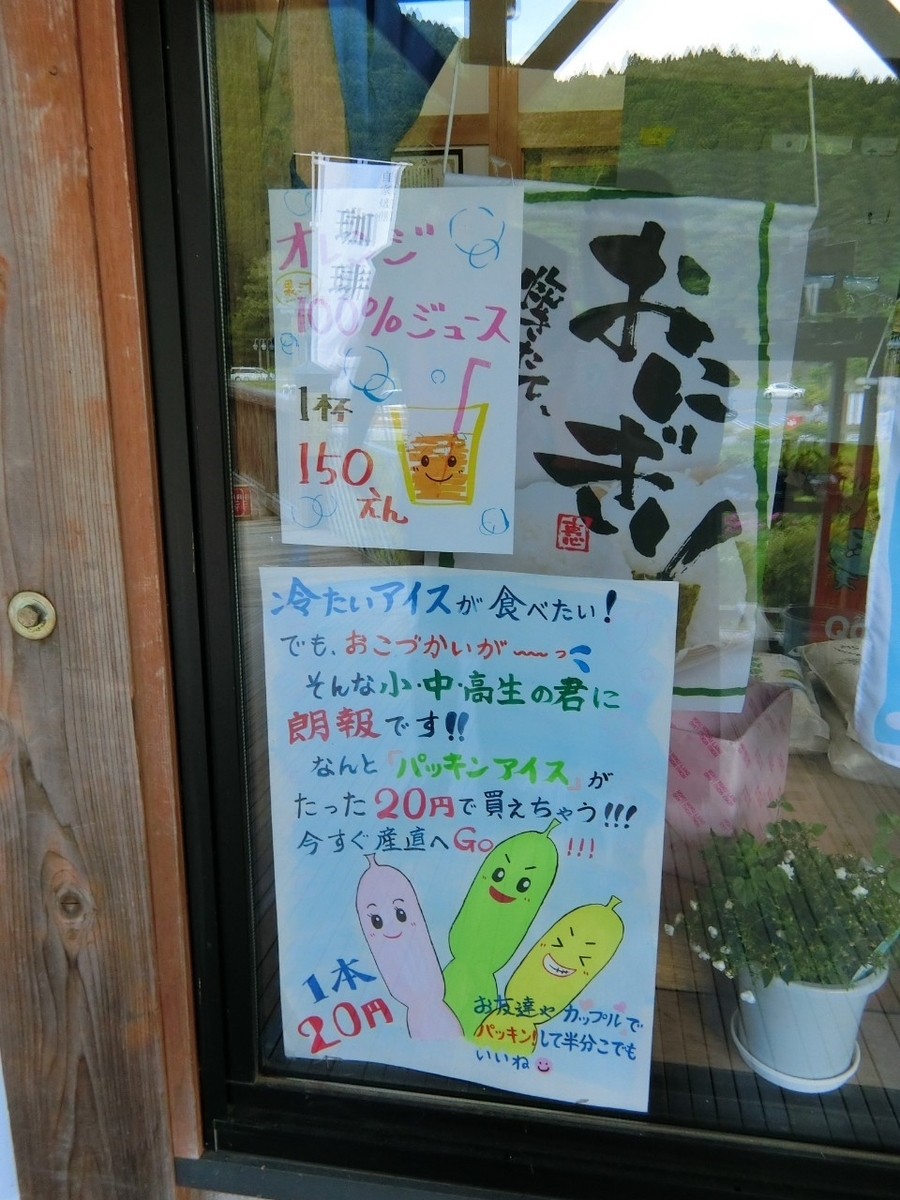 オレンジ
果汁
100%ジュース
1杯
150
えん
珈琲
おにぎり
焼きたて、
恵
冷たいアイスが食べたい!
でも、おこづかいが〜〜っ
そんな小・中・高生の君に
朗報です!!
なんと『パッキンアイス』が
たった20円で買えちゃう!!!
今すぐ産直へGo!!!
1本
20円
お友達やカップルで
パッキン!して半分こでも
いいね